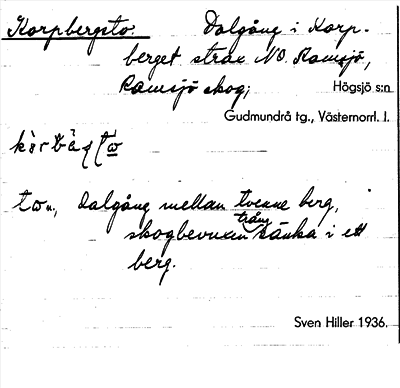 Korpbergsto. Dalgång i Korp-
berget strax NO. Ramsjö,
Ramsjö skog; Högsjö s:n
Gudmundrå tg., Västernorrl. l.
to n., Dalgång mellan tvenne berg,
trång
skogbevuxen sänka i ett
berg.
Sven Hiller 1936.